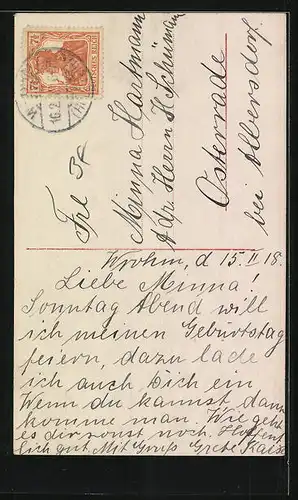 DEUTSCHES REICH
7½
16.2.
Frl
Minna Hartmann
Adr. Herrn H. Schümann
Osterrade
bei Albersdorf.
Wrohm, d 15. II 18.
Liebe Minna!
Sonntag Abend will
ich meinen Geburtstag
feiern, dazu lade
ich auch dich ein.
Wenn du kannst, dann
komme man. Wie geht
es dir sonst noch. Hoffent
lich gut. Mit Gruß Grete